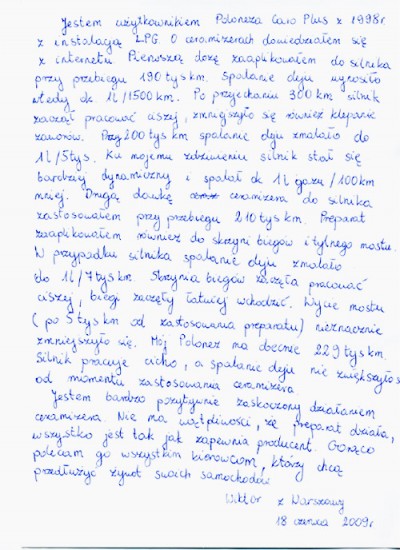 Jestem użytkownikiem Poloneza Caro Plus z 1998r
z instalacją LPG. O ceramizerach dowiedziałem się
z internetu. Pierwszą dozę zaaplikowałem do silnika
przy przebiegu 190 tys km. Spalanie oleju wynosiło
wtedy ok 1L/1500km. Po przejechaniu 300 km silnik
zaczął pracować ciszej, zmniejszyło się również klepanie
zaworów. Przy 200 tys km spalanie oleju zmalało do
1L/5tys. Ku mojemu zdziwieniu silnik stał się
bardziej dynamiczny i spalał ok 1L gazu/100km
mniej. Drugą dawkę ceramizera do silnika
zastosowałem przy przebiegu 210 tys km. Preparat
zaaplikowałem również do skrzyni biegów i tylnego mostu.
W przypadku silnika spalanie oleju zmalało
do 1L/7tys km. Skrzynia biegów zaczęła pracować
ciszej, biegi zaczęły łatwiej wchodzić. Wycie mostu
(po 5 tys km od zastosowania preparatu) nieznacznie
zmniejszyło się. Mój Polonez ma obecnie 229 tys km.
Silnik pracuje cicho, a spalanie oleju nie zwiększyło s
od momentu zastosowania ceramizera
Jestem bardzo pozytywnie zaskoczony działaniem
ceramizera. Nie ma wątpliwości, że preparat działa,
wszystko jest tak jak zapewnia producent. Gorąco
polecam go wszystkim kierowcom, którzy chcą
przedłużyć żywot swoich samochodów
Wiktor z Warszawy
18 czerwca 2009r